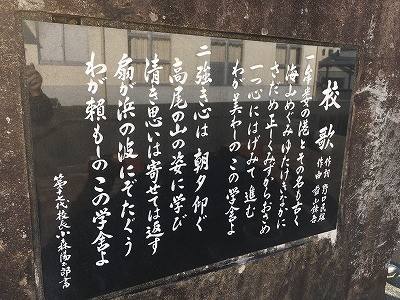 校歌
作詞 野口
作曲
一 牟婁の港とその名も古く
海山めぐみゆたけきなかに
さだめ正しくみずからおさめ
一つ心にはげみて進む
わが美わしのこの学舎よ
二 強き心は 朝夕仰ぐ
高尾の山の姿に学び
清き思いは寄せては返す
扇が浜の波にぞたぐう
わが頼もしのこの学舎よ
代校長 小森 書